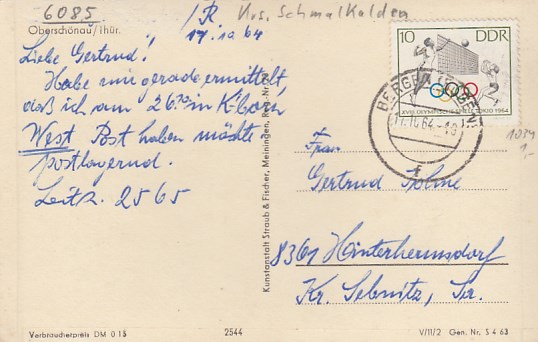 6085
/R. Krs. Schmalkalden
Oberschönau/Thür.
17.10.64
Liebe Gertrud!
Habe mir gerade ermittelt,
daß ich am 26.
West Post haben möchte
postlagernd.
Leitz. 2565
10 DDR
XVIII. OLYMPISCHE SPIELE TOKIO 1964
BERGEN (RÜGEN)
17.10.64-18
1034
1,-
Frau
Gertrud
8361 Hinterhermsdorf
Kr. Sebnitz, Sa.
Kunstanstalt Straub & Fischer, Meiningen, Repr.-Nr.
Verbraucherpreis DM 0 15
2544
V/11/2 Gen. Nr. S 4 63